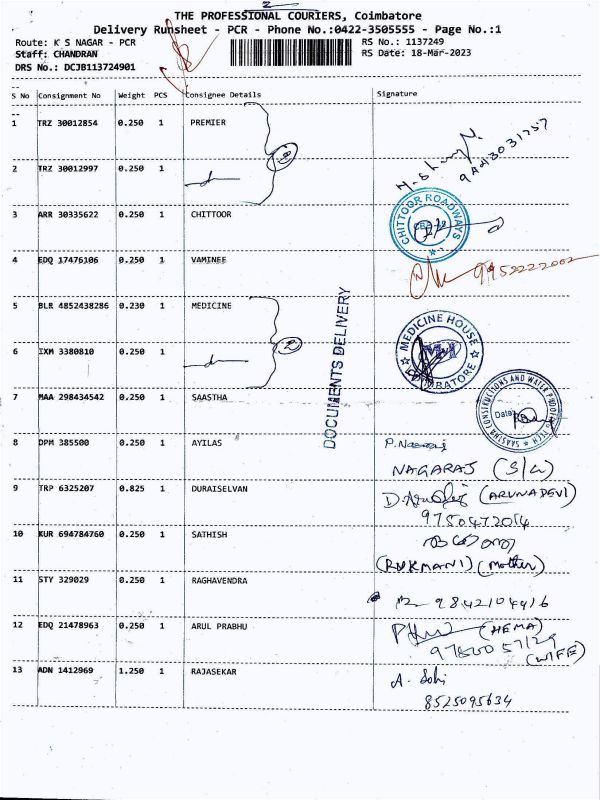 2
THE PROFESSIONAL COURIERS, Coimbatore
Delivery Runsheet - PCR - Phone No.:0422-3505555 - Page No.:1
Route: K S NAGAR - PCR RS No.: 1137249
Staff: CHANDRAN RS Date: 18-Mar-2023
DRS No.: DCJB113724901
S No Consignment No Weight PCS Consignee Details Signature
1 TRZ 30012854 0.250 1 PREMIER
9443031757
2 TRZ 30012997 0.250 1
3 ARR 30335622 0.250 1 CHITTOOR
CHITTOOR ROADWAYS
4 EDQ 17476106 0.250 1 VAMINEE
9952222002
5 BLR 4852438286 0.230 1 MEDICINE
MEDICINE HOUSE
COIMBATORE
6 IXM 3380810 0.250 1
DOCUMENTS DELIVERY
7 MAA 298434542 0.250 1 SAASTHA
SAASTHA CONSTRUCTIONS AND WATER PROOFING TECH
Date:
8 DPM 385500 0.250 1 AYILAS
NAGARAJ
9 TRP 6325207 0.825 1 DURAISELVAN
(ARUNADEVI)
9750472014
10 KUR 694784760 0.250 1 SATHISH
(RUKMANI) (Mother)
11 STY 329029 0.250 1 RAGHAVENDRA
9842104416
12 EDQ 21478963 0.250 1 ARUL PRABHU
(HEMA)
(WIFE)
13 ADN 1412969 1.250 1 RAJASEKAR
8525095634